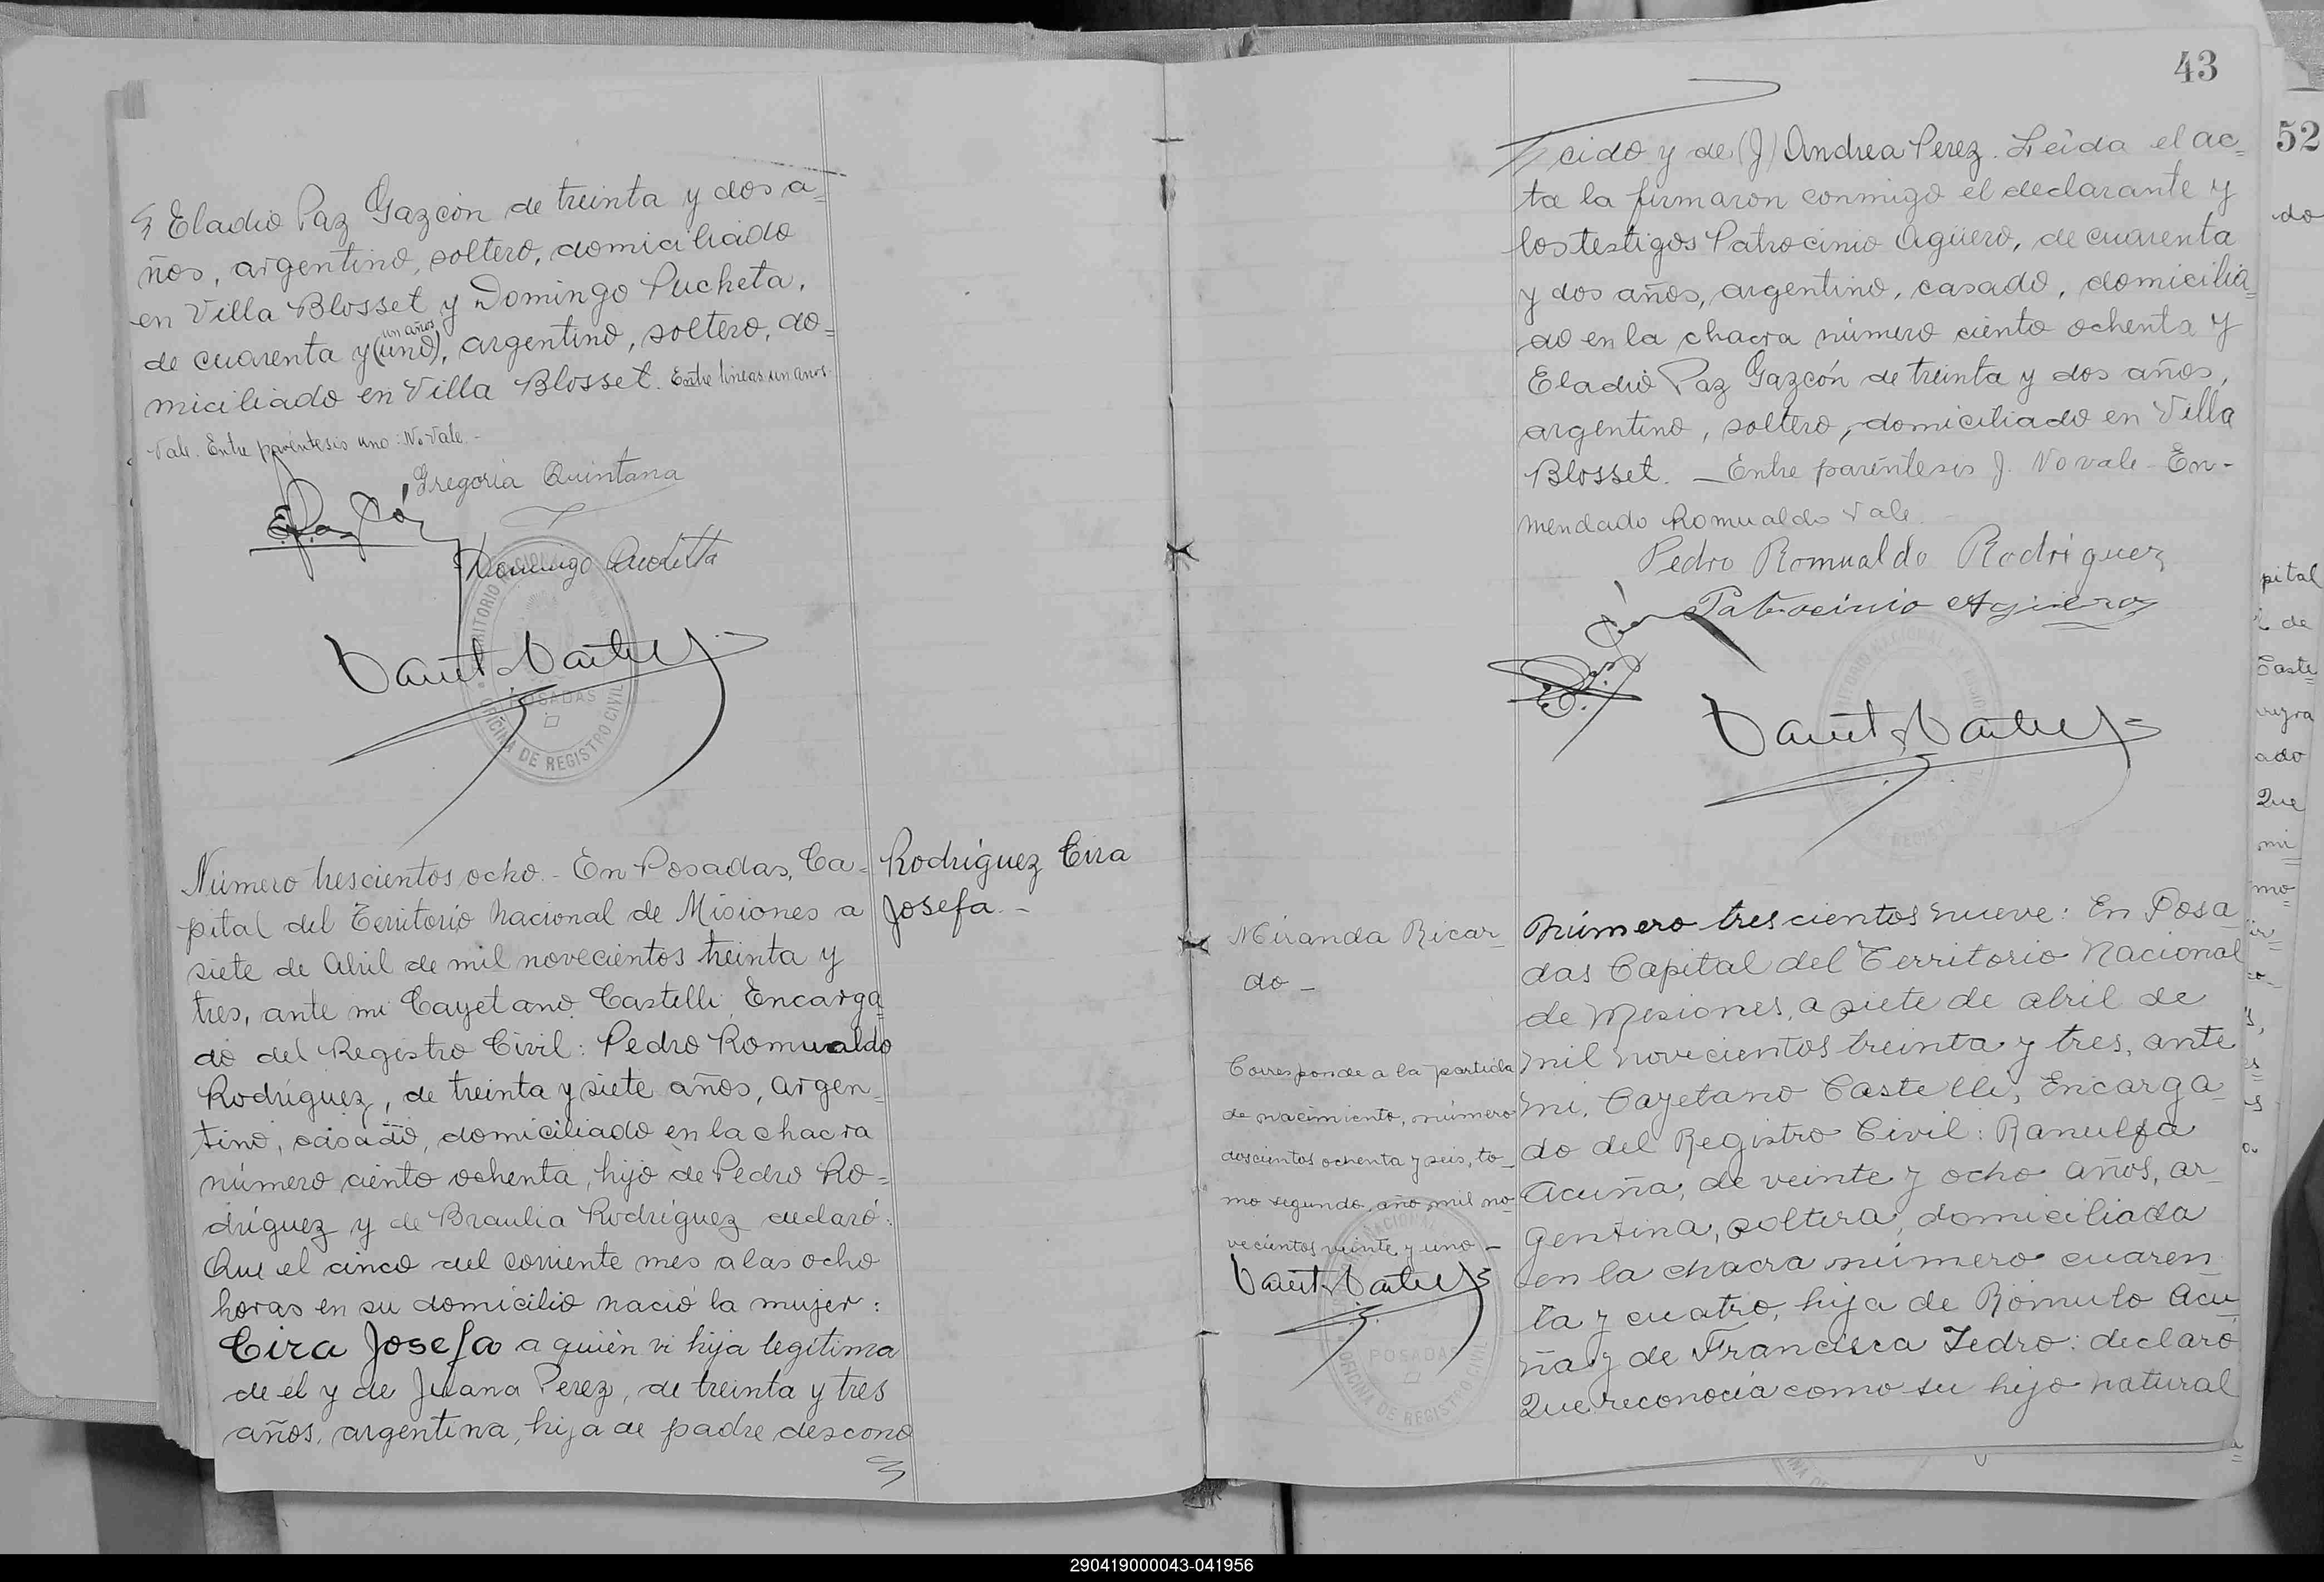 Eladio Paz Gazcón de treinta y dos a=
ños, argentino, soltero, domiciliado
en Villa Blosset y Domingo Pucheta,
un años
de cuarenta y (uno), argentino, soltero, do=
miciliado en Villa Blosset. Entre líneas: un años.
Vale. Entre paréntesis uno: No Vale.-
Gregoria Quintana
Domingo Pucheta
TERRITORIO NACIONAL
POSADAS
OFICINA DE REGISTRO CIVIL
Número trescientos ocho.- En Posadas, Ca=
pital del Territorio Nacional de Misiones a
siete de Abril de mil novecientos treinta y
tres, ante mi Cayetano Castelli, Encarga=
do del Registro Civil: Pedro Romualdo
Rodríguez, de treinta y siete años, argen=
tino, casado, domiciliado en la chacra
número ciento ochenta, hijo de Pedro Ro=
dríguez y de Braulia Rodríguez declaró:
Que el cinco del corriente mes a las ocho
horas en su domicilio nació la mujer:
Cira Josefa a quién vi hija legítima
de él y de Juana Perez, de treinta y tres
años, argentina, hija de padre descono
Rodríguez Cira
Josefa.-
43
cido y de (J) Andrea Perez. Leída el ac=
ta la firmaron conmigo el declarante y
los testigos Patrocinio Agüero, de cuarenta
y dos años, argentino, casado, domicilia=
do en la chacra número ciento ochenta y
Eladio Paz Gazcón de treinta y dos años,
argentino, soltero, domiciliado en Villa
Blosset. - Entre paréntesis J. No vale - En-
mendado Romualdo Vale.
Pedro Romualdo Rodríguez
Patrocinio Agüero
Miranda Ricar-
do -
Corresponde a la partida
de nacimiento, número
doscientos ochenta y seis, to-
mo segundo, año mil no-
vecientos veinte y uno -
POSADAS
OFICINA DE REGISTRO CIVIL
Número trescientos nueve: En Posa-
das Capital del Territorio Nacional
de Misiones, a siete de abril de
mil novecientos treinta y tres, ante
mi, Cayetano Castelli, Encarga-
do del Registro Civil: Ranulfa
Acuña, de veinte y ocho años, ar-
gentina, soltera, domiciliada
en la chacra número cuaren
ta y cuatro, hija de Rómulo Acu-
ña y de Francisca Tedro: declaró
Que reconocía como su hijo natural
52
do
pital
de
ado
Que
mi
mo-
290419000043-041956